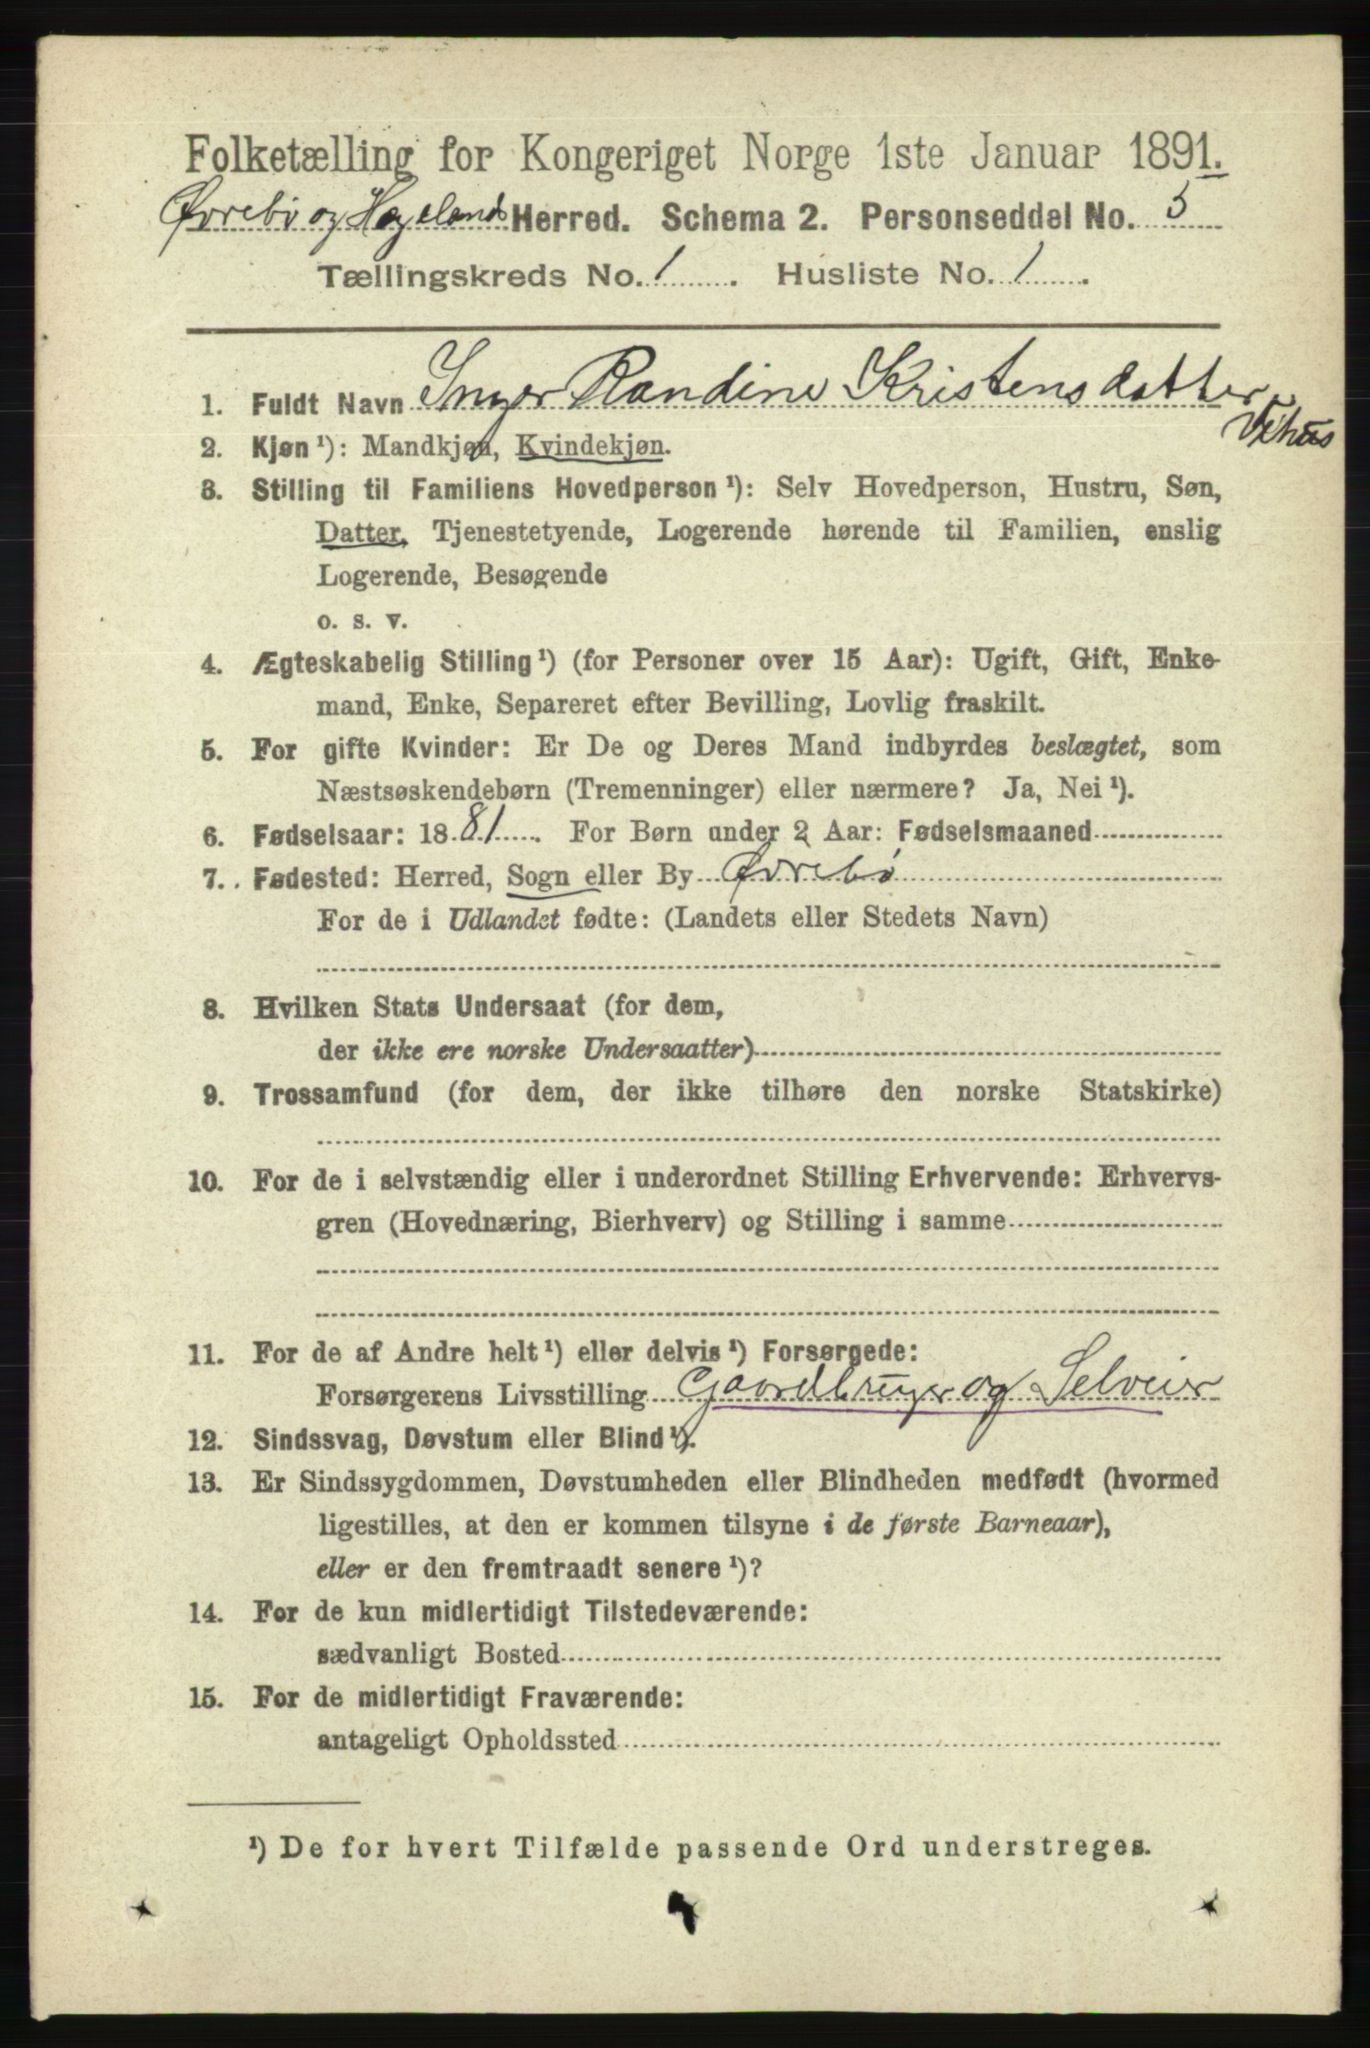 Folketælling for Kongeriget Norge 1ste Januar 1891.
Øvrebø og Hægelands Herred. Schema 2. Personseddel No. 5
Tællingskreds No. 1. Husliste No. 1.
1. Fuldt Navn Inger Randine Kristensdatter
Vehus
2. Kjøn ¹): Mandkjøn, Kvindekjøn.
3. Stilling til Familiens Hovedperson ¹): Selv Hovedperson, Hustru, Søn,
Datter, Tjenestetyende, Logerende hørende til Familien, enslig
Logerende, Besøgende
o. s. v.
4. Ægteskabelig Stilling ¹) (for Personer over 15 Aar): Ugift, Gift, Enke-
mand, Enke, Separeret efter Bevilling, Lovlig fraskilt.
5. For gifte Kvinder: Er De og Deres Mand indbyrdes beslægtet, som
Næstsøskendebørn (Tremenninger) eller nærmere? Ja, Nei ¹).
6. Fødselsaar: 1881. For Børn under 2 Aar: Fødselsmaaned
7. Fødested: Herred, Sogn eller By Øvrebø
For de i Udlandet fødte: (Landets eller Stedets Navn)
8. Hvilken Stats Undersaat (for dem,
der ikke ere norske Undersaatter)
9. Trossamfund (for dem, der ikke tilhøre den norske Statskirke)
10. For de i selvstændig eller i underordnet Stilling Erhvervende: Erhvervs-
gren (Hovednæring, Bierhverv) og Stilling i samme
11. For de af Andre helt ¹) eller delvis ¹) Forsørgede:
Forsørgerens Livsstilling Gaardbruger og Selveier
12. Sindssvag, Døvstum eller Blind ¹).
13. Er Sindssygdommen, Døvstumheden eller Blindheden medfødt (hvormed
ligestilles, at den er kommen tilsyne i de første Barneaar),
eller er den fremtraadt senere ¹)?
14. For de kun midlertidigt Tilstedeværende:
sædvanligt Bosted
15. For de midlertidigt Fraværende:
antageligt Opholdssted
¹) De for hvert Tilfælde passende Ord understreges.